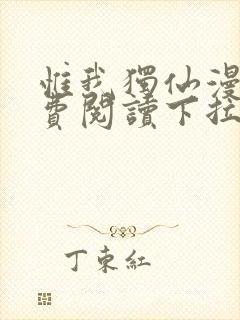 惟我獨仙漫
費閱讀下拉
丁東紅